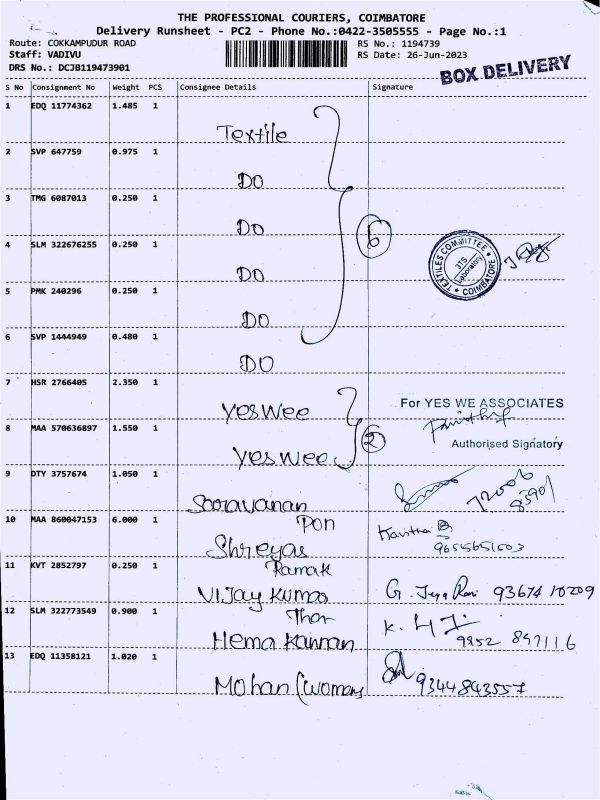 THE PROFESSIONAL COURIERS, COIMBATORE
Delivery Runsheet - PC2 - Phone No.:0422-3505555 - Page No.:1
Route: COKKAMPUDUR ROAD RS No.: 1194739
Staff: VADIVU RS Date: 26-Jun-2023
DRS No.: DCJB119473901
BOX DELIVERY
S No Consignment No Weight PCS Consignee Details Signature
1 EDQ 11774362 1.485 1
Textile
2 SVP 647759 0.975 1
DO
3 TMG 6087013 0.250 1
DO
6
4 SLM 322676255 0.250 1
DO
TEXTILES COMMITTEE JTS Laboratory COIMBATORE
5 PMK 240296 0.250 1
DO
6 SVP 1444949 0.480 1
DO
7 HSR 2766405 2.350 1
Yeswee
For YES WE ASSOCIATES
8 MAA 570636897 1.550 1
2
Authorised Signatory
Yeswee
9 DTY 3757674 1.050 1
Sooravanan
72006
83901
10 MAA 860047153 6.000 1
Pon
Kavitha
Shreyas
9655651503
11 KVT 2852797 0.250 1
Ramak
Vijay Kumar
G. Jeya Rani 93674 10209
12 SLM 322773549 0.900 1
Thor
Hema Kannan
9952 847116
13 EDQ 11358121 1.020 1
Mohan (womans
9344843557